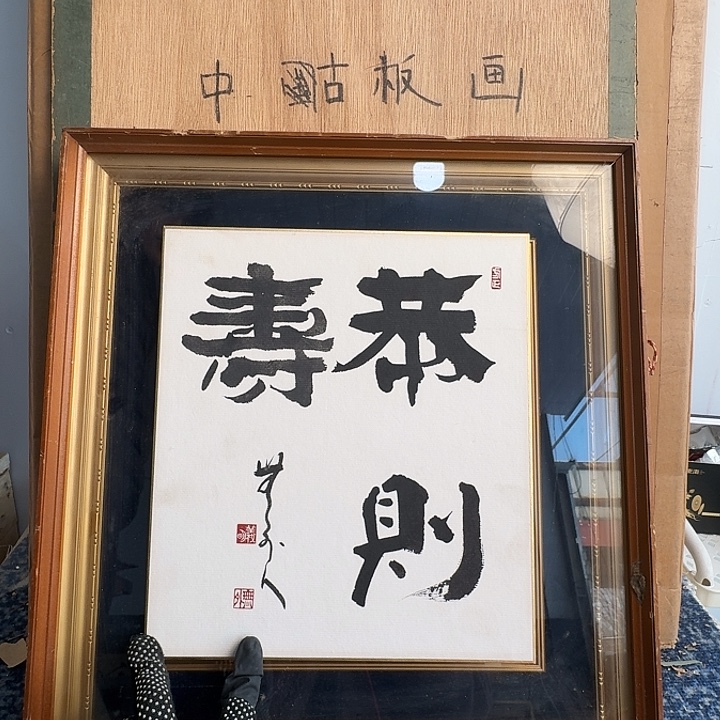 中 古板画
恭則
壽